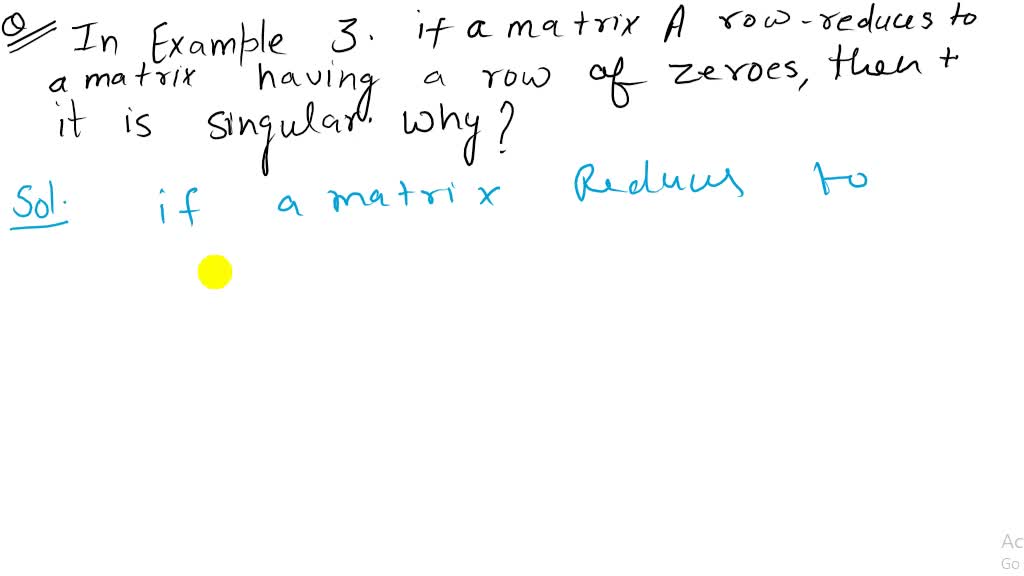 Q In Example 3. if a matrix A row-reduces to
a matrix having a row of zeroes, then t
it is singular. why?
Sol. if a matrix Reduces to
Ac
Go